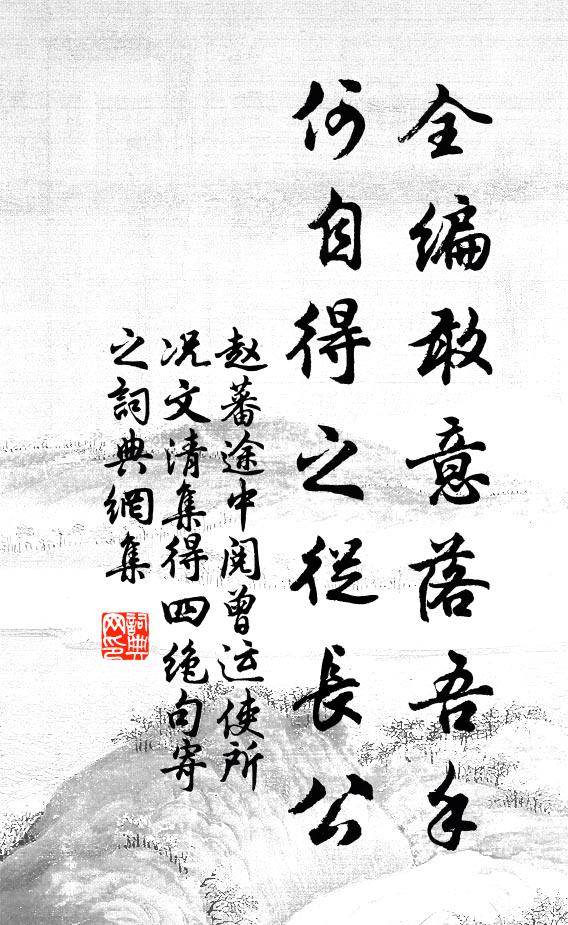 全编敢意落吾手
何自得之从長公
赵蕃途中阅曾运使所
况文清集得四绝句寄
之詞典網集
詞典
网印